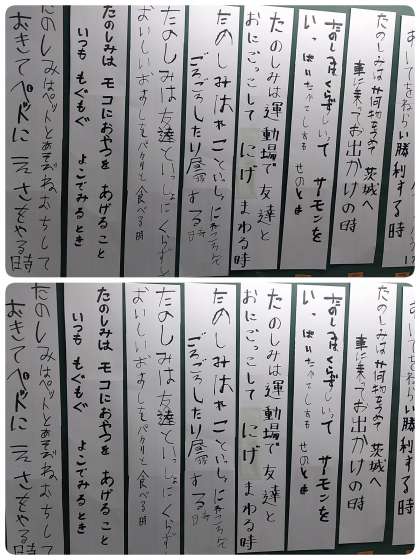 ねらい勝利する時
たのしみは荷物をつめて 茨城へ
車に乗ってお出かけの時
たのしみは くらずしいって サーモンを
い、ぱいたべて のとき
たのしみは運動場で友達と
おにごっこして にげまわる時
たのしみは といっしょに
ごろごろしたり昼寝する時
たのしみは友達といっしょにくらずし
おいしいおすしをパクリと食べる時
たのしみは モコにおやつを あげること
いつも もぐもぐ よこでみるとき
たのしみはペットとあそび ねおちして
おきてペットに えさをやる時
ねらい勝利する時
たのしみは荷物をつめて 茨城へ
車に乗ってお出かけの時
たのしみは くらずしいって サーモンを
い、ぱいたべて のとき
たのしみは運動場で友達と
おにごっこして にげまわる時
たのしみは といっしょに
ごろごろしたり昼寝する時
たのしみは友達といっしょにくらずし
おいしいおすしをパクリと食べる時
たのしみは モコにおやつを あげること
いつも もぐもぐ よこでみるとき
たのしみはペットとあそび ねおちして
おきてペットに えさをやる時